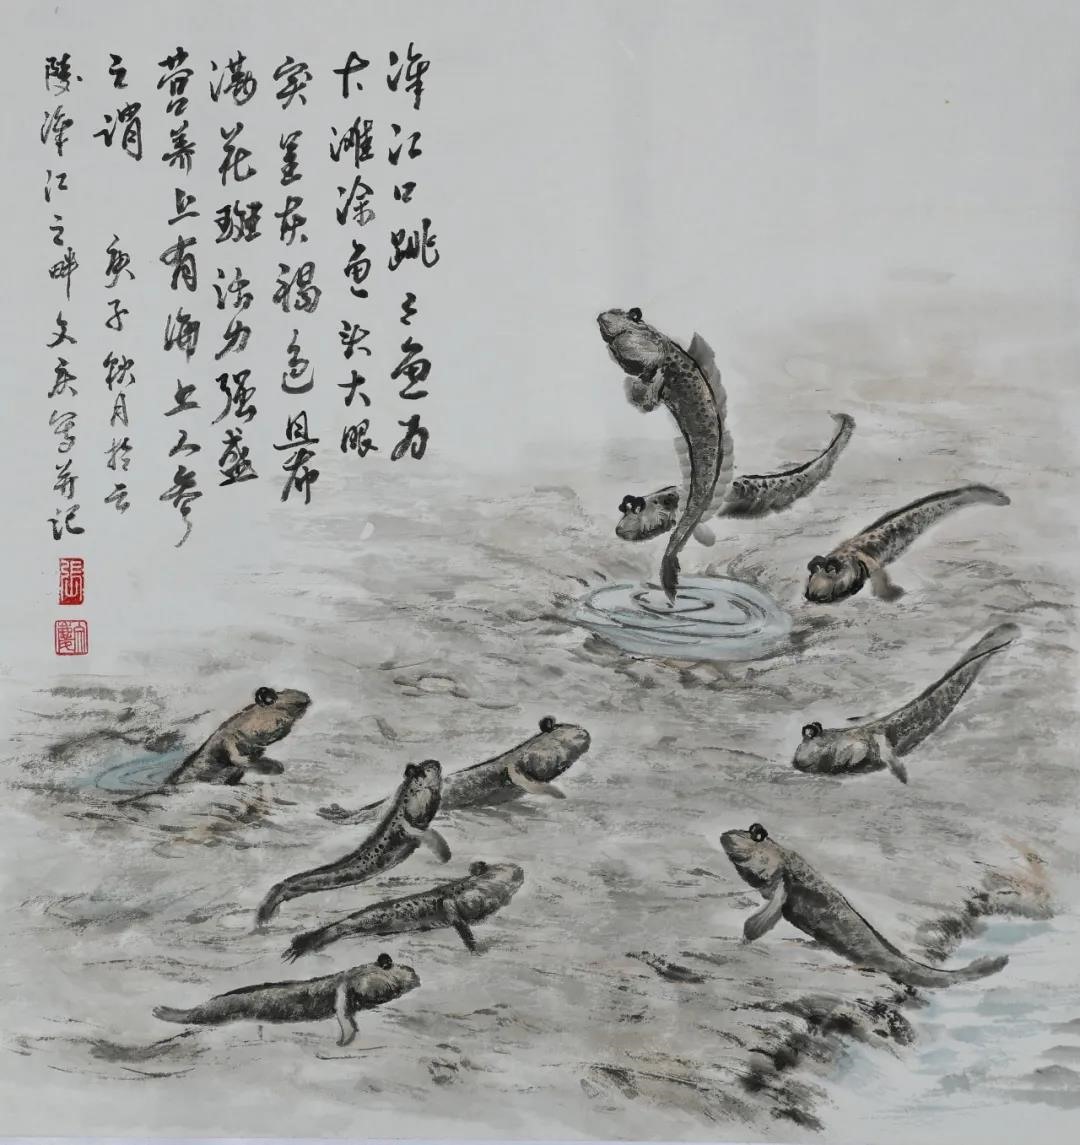 漳江口跳々鱼为
大滩涂鱼头大眼
突呈灰褐色且布
满花斑活力强盛
营养上有海上人参
之谓 庚子秋月於云
陵漳江之畔文庆写并记
張
文慶